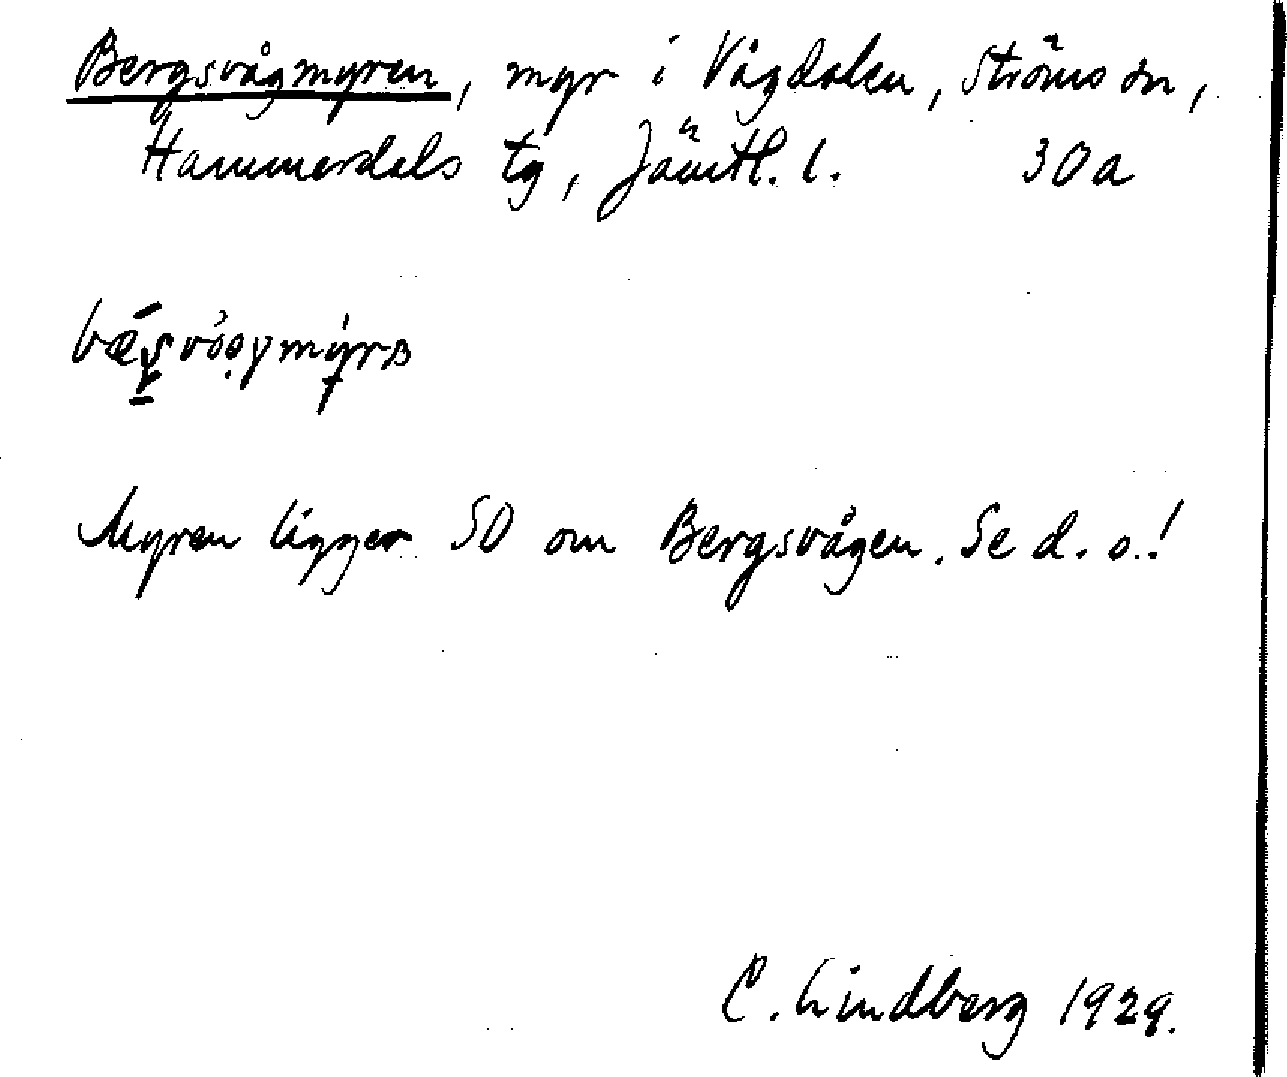 Bergsvågmyren, myr i Vågdalen, Ströms sn,
Hammerdals tg, Jämtl. l. 30a
Myren ligger SO om Bergsvågen. Se d. o.!
C. Lindberg 1929.